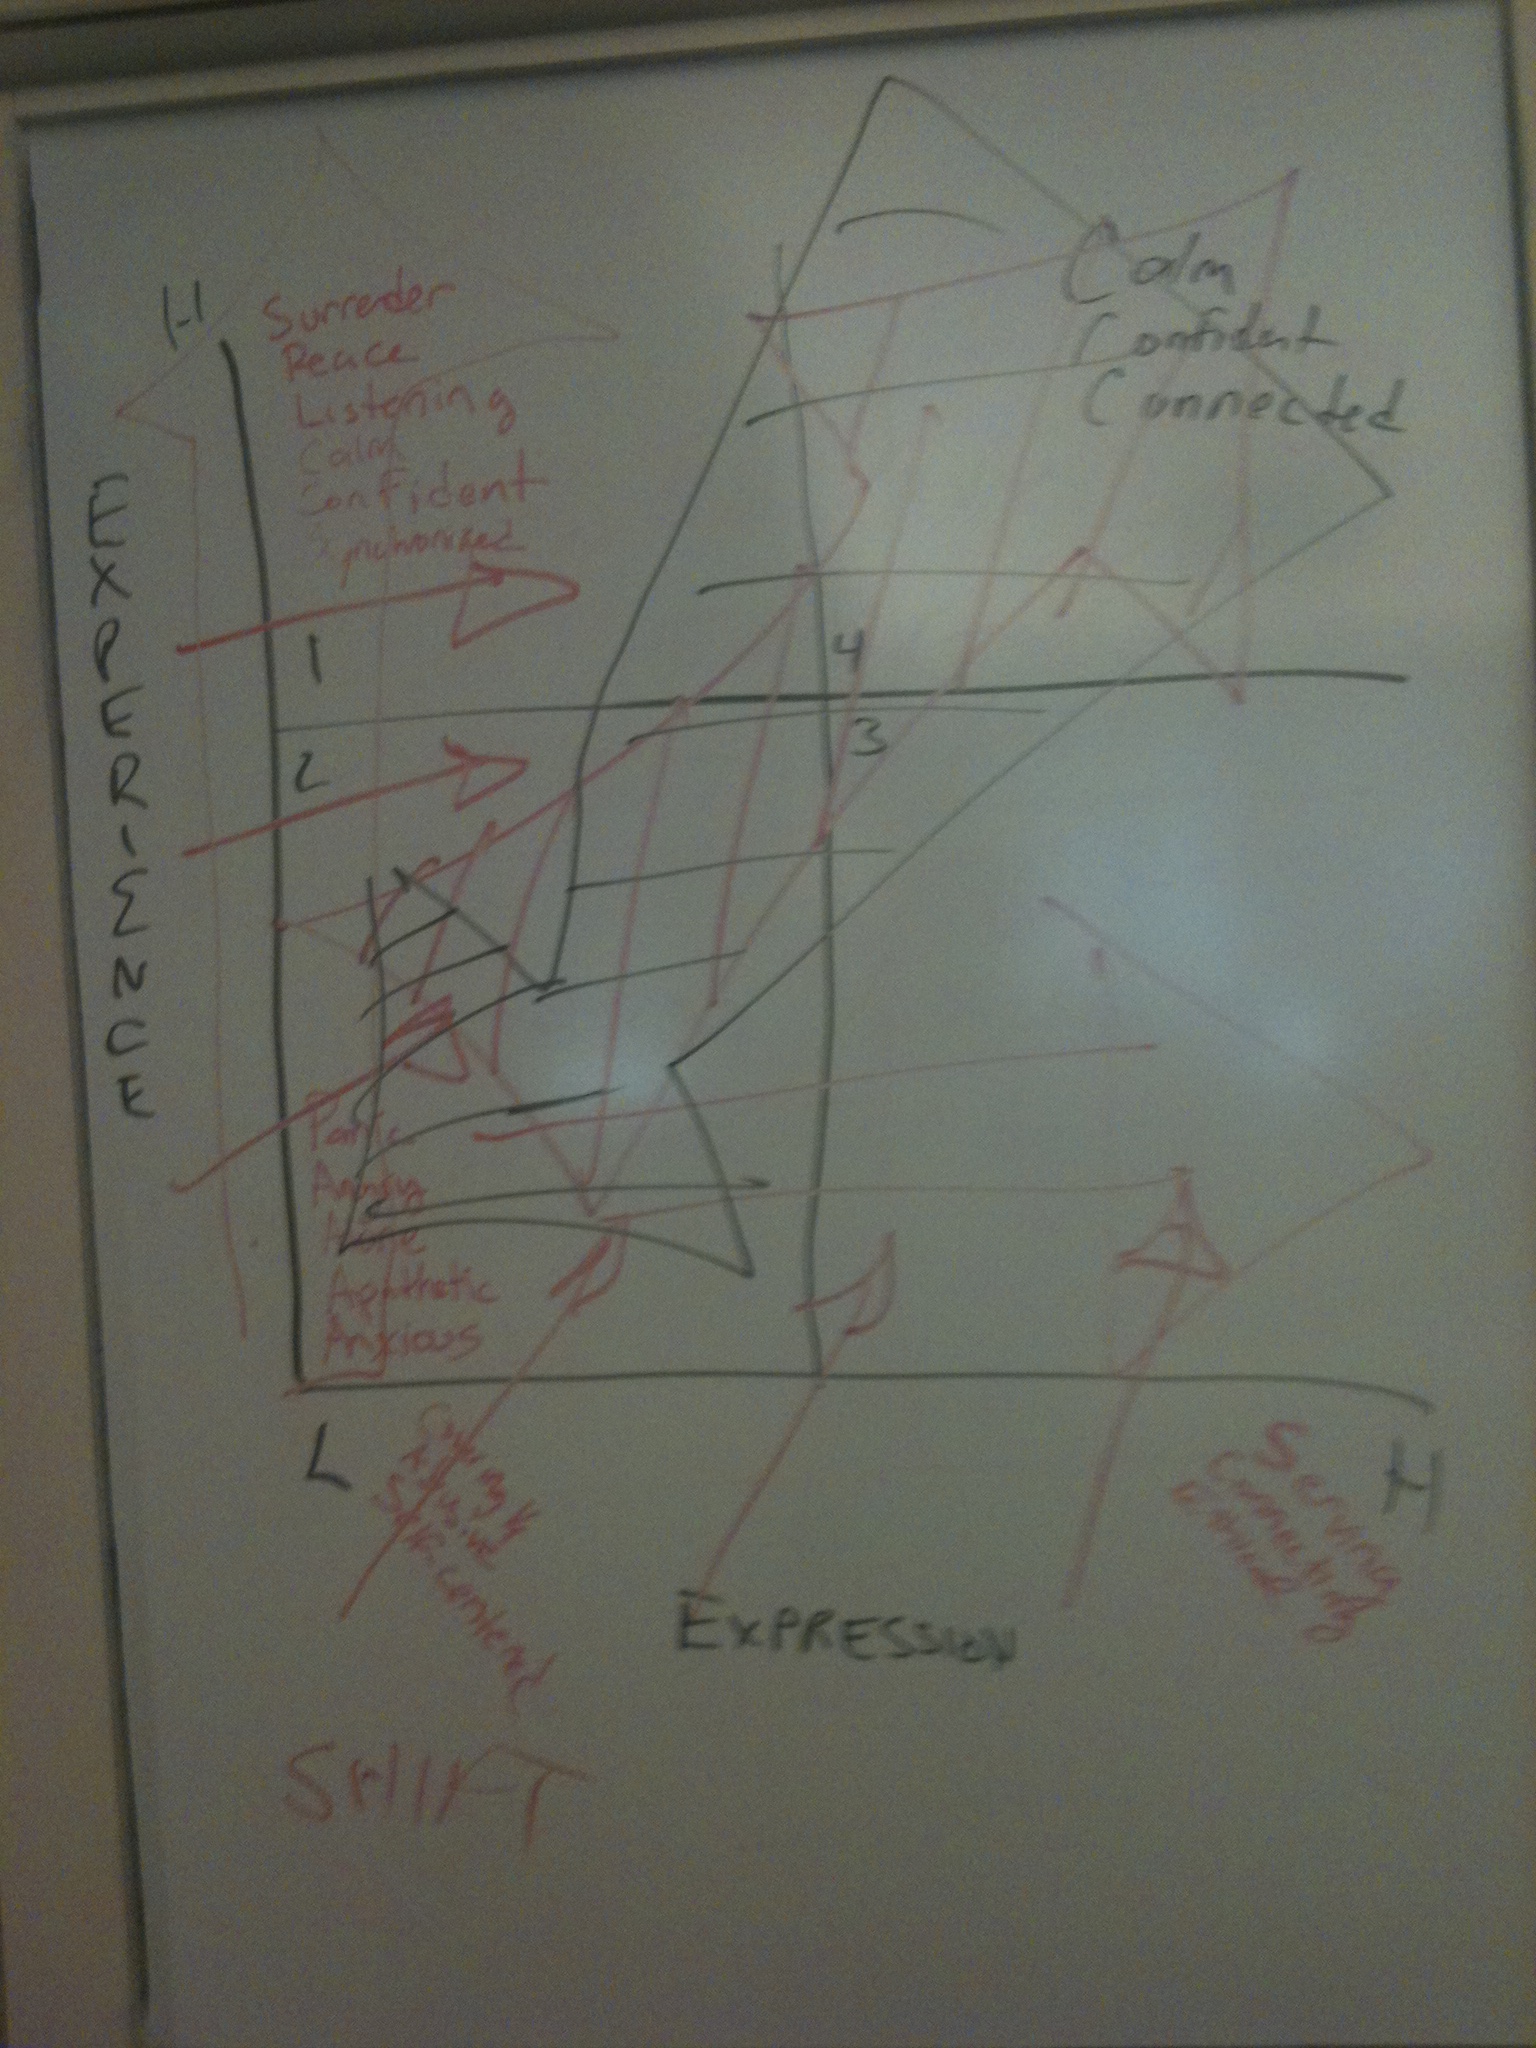 H
Surrender
Peace
Listening
Calm
Confident
Synchronized
Calm
Confident
Connected
EXPERIENCE
1
4
2
3
Panic
Apathetic
Anxious
L
H
Self-centered
Serving
Connecting
EXPRESSION
SHIFT